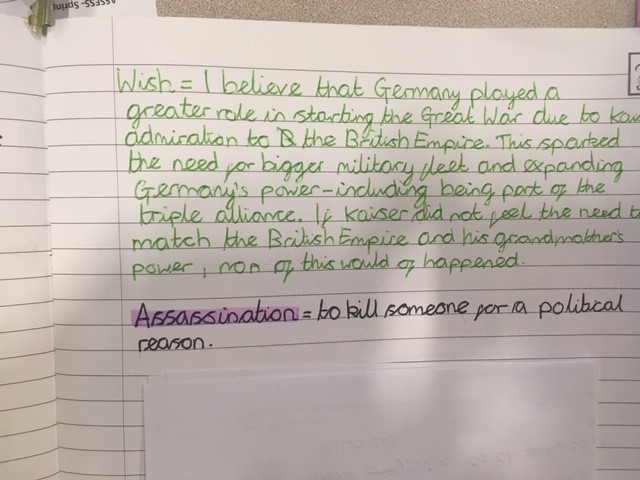 ASSESS - Spring
Wish = I believe that Germany played a
greater role in starting the Great War due to
admiration to the British Empire. This sparked
the need for bigger military fleet and expanding
Germany's power - including being part of the
triple alliance. If Kaiser did not feel the need to
match the British Empire and his grandmother's
power, non of this would of happened.
Assassination = to kill someone for a political
reason.